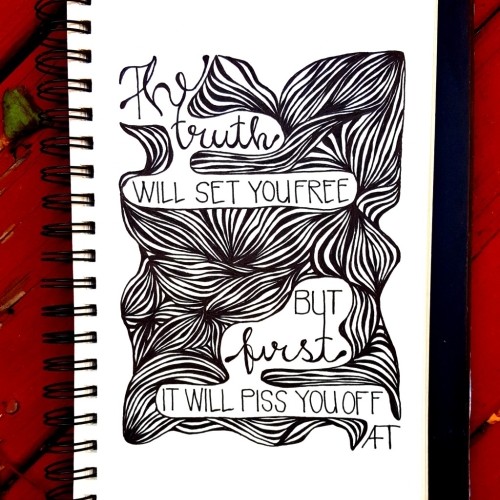 The
truth
WILL SET YOU FREE
BUT
first
IT WILL PISS YOU OFF
AT